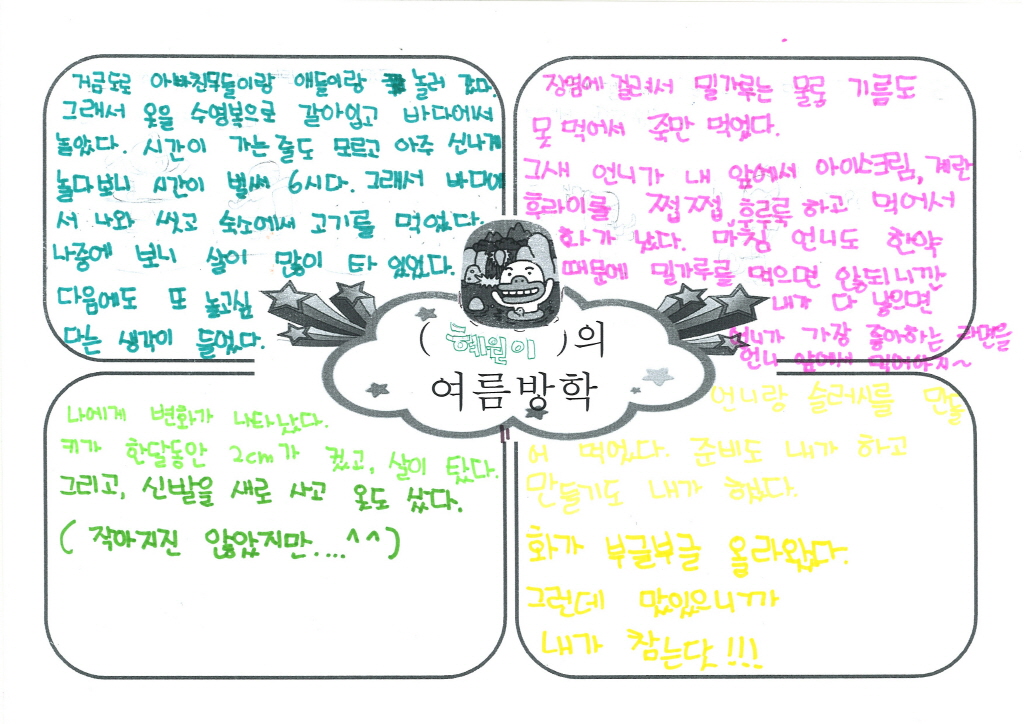 거금도로 아빠친구들이랑 애들이랑 놀러 갔다.
그래서 옷을 수영복으로 갈아입고 바다에서
놀았다. 시간이 가는줄도 모르고 아주 신나게
놀다보니 시간이 벌써 6시다. 그래서 바다에
서 나와 씻고 숙소에써 고기를 먹었다.
나중에 보니 살이 많이 타 있었다.
다음에도 또 놀고싶
다는 생각이 들었다.
장염에 걸려서 밀가루는 물론 기름도
못 먹어서 죽만 먹었다.
그새 언니가 내 앞에서 아이스크림, 계란
후라이를 쩝쩝, 호로록 하고 먹어서
화가 났다. 마침 언니도 한약
때문에 밀가루를 먹으면 안되니깐
내가 다 낳으면
언니가 가장 좋아하는 라면을
언니 앞에서 먹어야지~
(혜원이)의
여름방학
나에게 변화가 나타났다.
키가 한달동안 2cm가 컸고, 살이 탔다.
그리고, 신발을 새로 사고 옷도 샀다.
(작아지진 않았지만....^^)
언니랑 슬러씨를 만들
어 먹었다. 준비도 내가 하고
만들기도 내가 했다.
화가 부글부글 올라왔다.
그런데 맛있으니까
내가 참는닷!!!